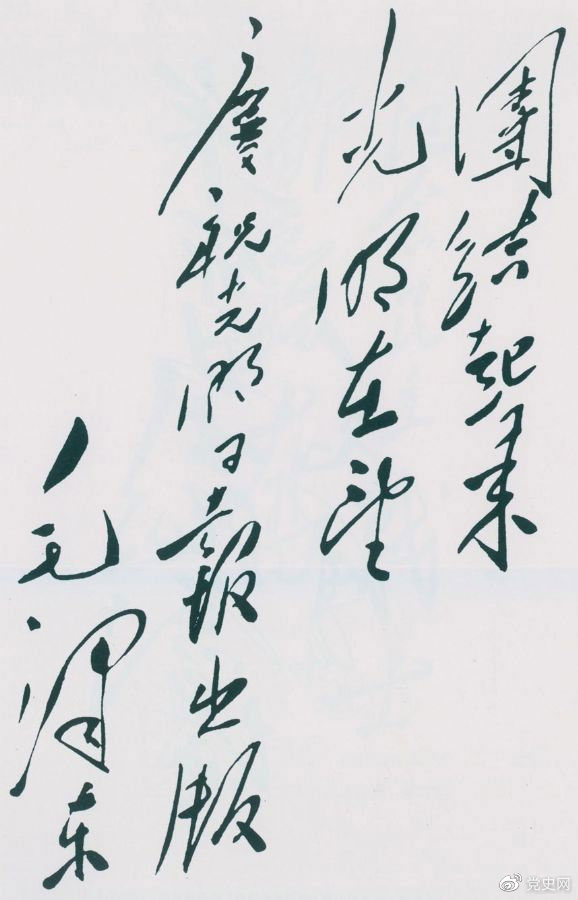 團結起来
光明在望
慶祝光明日報出版
毛澤东
党史网